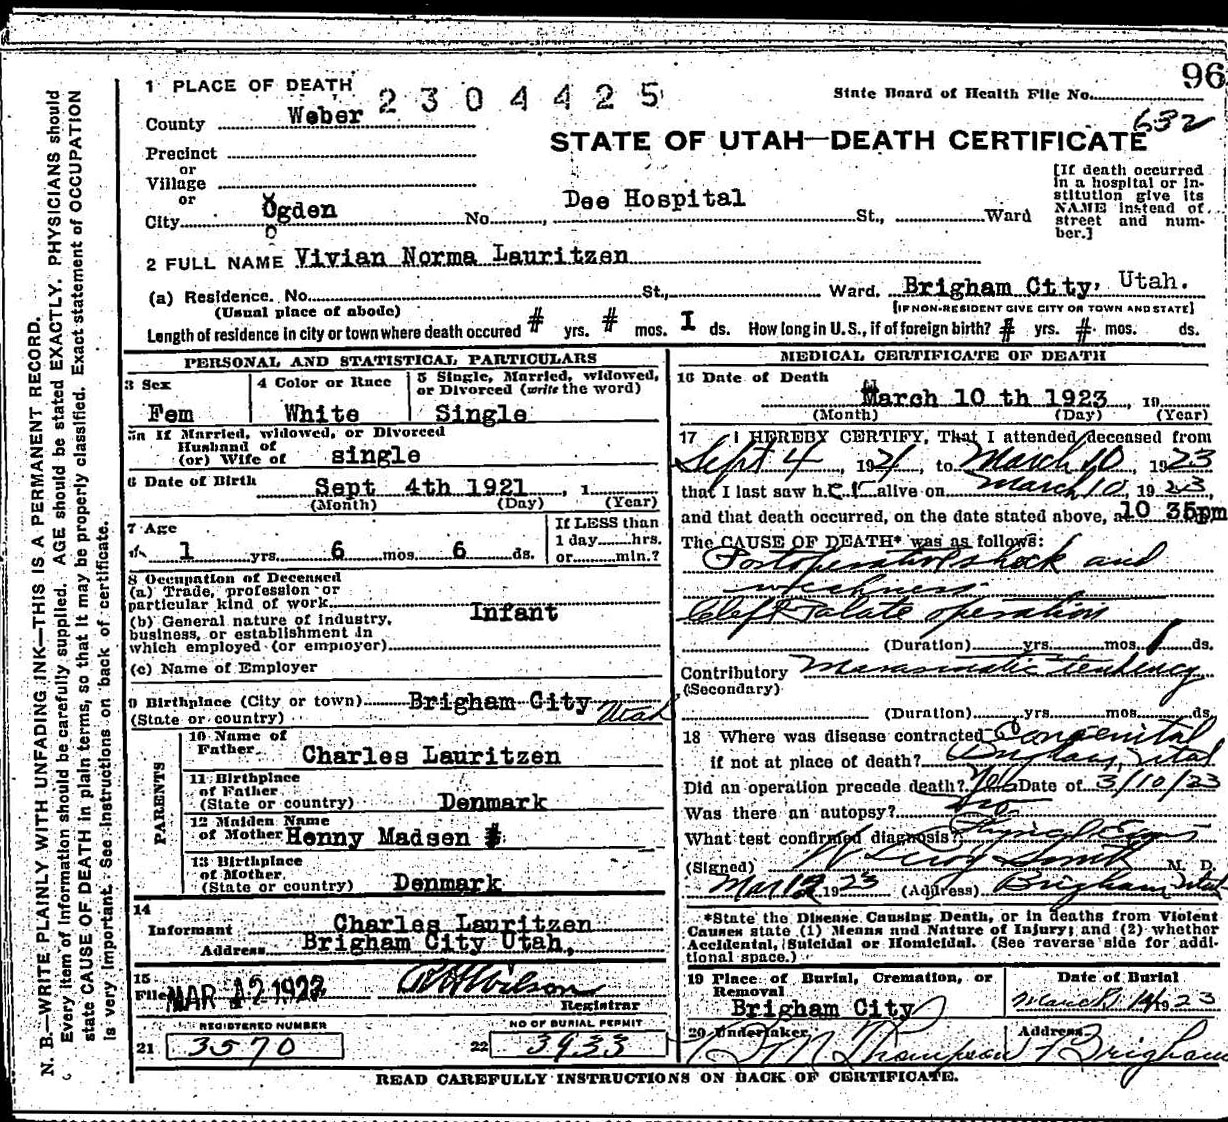 96
1 PLACE OF DEATH 2304425
State Board of Health File No.
632
County Weber
STATE OF UTAH—DEATH CERTIFICATE
Precinct
or
Village
or
City Ogden No. Dee Hospital St., Ward
[If death occurred in a hospital or institution give its NAME instead of street and number.]
2 FULL NAME Vivian Norma Lauritzen
(a) Residence. No. St., Ward. Brigham City, Utah.
(Usual place of abode) [IF NON-RESIDENT GIVE CITY OR TOWN AND STATE]
Length of residence in city or town where death occured # yrs. # mos. I ds. How long in U.S., if of foreign birth? # yrs. # mos. ds.
N. B.—WRITE PLAINLY WITH UNFADING INK—THIS IS A PERMANENT RECORD.
Every item of information should be carefully supplied. AGE should be stated EXACTLY. PHYSICIANS should
state CAUSE OF DEATH in plain terms, so that it may be properly classified. Exact statement of OCCUPATION
is very important. See instructions on back of certificate.
PERSONAL AND STATISTICAL PARTICULARS
3 Sex Fem
4 Color or Race White
5 Single, Married, widowed,
or Divorced (write the word)
Single
5a If Married, widowed, or Divorced
Husband of
(or) Wife of single
6 Date of Birth Sept 4th 1921, 1
(Month) (Day) (Year)
7 Age
1 yrs. 6 mos 6 ds.
If LESS than
1 day hrs.
or min.?
8 Occupation of Deceased
(a) Trade, profession or
particular kind of work Infant
(b) General nature of industry,
business, or establishment in
which employed (or employer)
(c) Name of Employer
9 Birthplace (City or town) Brigham City Utah
(State or country)
PARENTS
10 Name of
Father Charles Lauritzen
11 Birthplace
of Father
(State or country) Denmark
12 Maiden Name
of Mother Henny Madsen #
13 Birthplace
of Mother
(State or country) Denmark
14
Informant Charles Lauritzen
Address Brigham City Utah,
15
Filed MAR 12 1923 Wilson
Registrar
REGISTERED NUMBER
21 3570
NO OF BURIAL PERMIT
22 3933
MEDICAL CERTIFICATE OF DEATH
16 Date of Death
March 10 th 1923, 19
(Month) (Day) (Year)
17 I HEREBY CERTIFY, That I attended deceased from
Sept 4, 1921 to March 10, 1923
that I last saw her alive on March 10, 1923,
and that death occurred, on the date stated above, at 10 35pm
The CAUSE OF DEATH* was as follows:
Postoperative shock and
weakness
Cleft Palate operation
(Duration) yrs mos. 1 ds.
Contributory Marasmatic tendency
(Secondary)
(Duration) yrs mos ds.
18 Where was disease contracted Congenital
if not at place of death? Brigham, Utah
Did an operation precede death? Yes Date of 3/10/23
Was there an autopsy? No
What test confirmed diagnosis?
(Signed) W Leroy Smith M. D.
Mar 12 1923 (Address) Brigham Utah
*State the Disease Causing Death, or in deaths from Violent
Causes state (1) Means and Nature of Injury; and (2) whether
Accidental, Suicidal or Homicidal. (See reverse side for additional space.)
19 Place of Burial, Cremation, or
Removal
Brigham City
Date of Burial
March 14 1923
20 Undertaker Thompson
Address Brigham
READ CAREFULLY INSTRUCTIONS ON BACK OF CERTIFICATE.